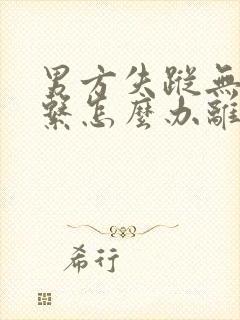 男方失蹤無
繫怎麼办離
希行